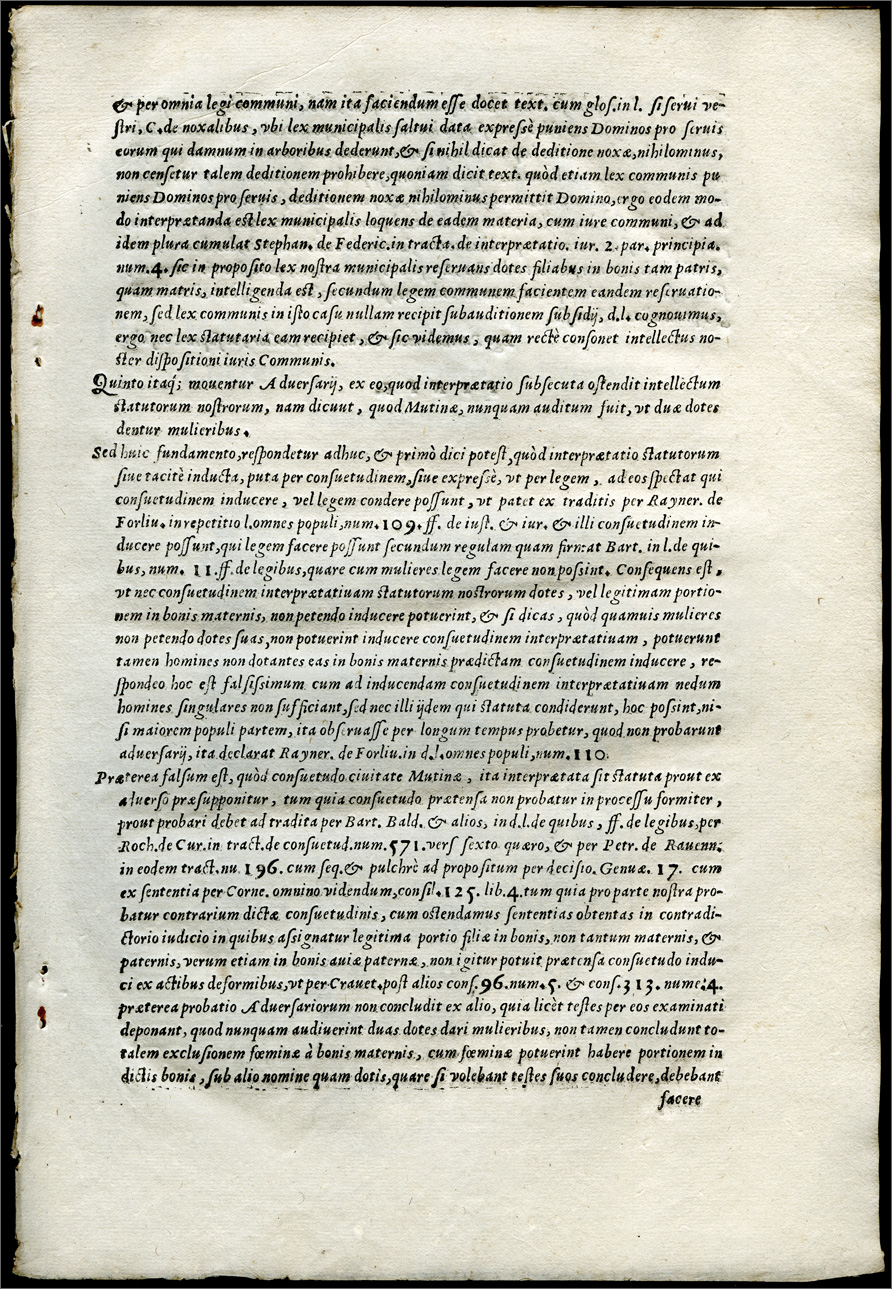 & per omnia legi communi, nam ita faciendum esse docet text. cum glos. in l. si serui ve-
stri, C. de noxalibus, vbi lex municipalis saltui data expressè puniens Dominos pro seruis
eorum qui damnum in arboribus dederunt, & si nihil dicat de deditione noxæ, nihilominus,
non censetur talem deditionem prohibere, quoniam dicit text. quòd etiam lex communis pu
niens Dominos pro seruis, deditionem noxæ nihilominus permittit Domino, ergo eodem mo-
do interprætanda est lex municipalis loquens de eadem materia, cum iure communi, & ad
idem plura cumulat Stephan. de Federic. in tracta. de interprætatio. iur. 2. par. principia.
num. 4. sic in proposito lex nostra municipalis reseruans dotes filiabus in bonis tam patris,
quam matris, intelligenda est, secundum legem communem facientem eandem reseruatio-
nem, sed lex communis in isto casu nullam recipit subauditionem subsidij, d.l. cognouimus,
ergo nec lex statutaria eam recipiet, & sic videmus, quam rectè consonet intellectus no-
ster dispositioni iuris Communis.
Quinto itaq; mouentur Aduersarij, ex eo, quod interprætatio subsecuta ostendit intellectum
statutorum nostrorum, nam dicunt, quod Mutinæ, nunquam auditum fuit, vt duæ dotes
dentur mulieribus.
Sed huic fundamento, respondetur adhuc, & primò dici potest, quòd interprætatio statutorum
siue tacitè inducta, puta per consuetudinem, siue expressè, vt per legem, ad eos spectat qui
consuetudinem inducere, vel legem condere possunt, vt patet ex traditis per Rayner. de
Forliu. in repetitio l. omnes populi, num. 109. ff. de iust. & iur. & illi consuetudinem in-
ducere possunt, qui legem facere possunt secundum regulam quam firmat Bart. in l. de qui-
bus, num. 11. ff. de legibus, quare cum mulieres legem facere non possint. Consequens est,
vt nec consuetudinem interprætatiuam statutorum nostrorum dotes, vel legitimam portio-
nem in bonis maternis, non petendo inducere potuerint, & si dicas, quòd quamuis mulieres
non petendo dotes suas, non potuerint inducere consuetudinem interprætatiuam, potuerunt
tamen homines non dotantes eas in bonis maternis prædictam consuetudinem inducere, re-
spondeo hoc est falsissimum cum ad inducendam consuetudinem interprætatiuam nedum
homines singulares non sufficiant, sed nec illi ijdem qui statuta condiderunt, hoc possint, ni-
si maiorem populi partem, ita obseruasse per longum tempus probetur, quod non probarunt
aduersarij, ita declarat Rayner. de Forliu. in d.l. omnes populi, num. 110.
Præterea falsum est, quòd consuetudo ciuitate Mutinæ, ita interprætata sit statuta prout ex
aduerso præsupponitur, tum quia consuetudo prætensa non probatur in processu formiter,
prout probari debet ad tradita per Bart. Bald. & alios, in d.l. de quibus, ff. de legibus, per
Roch. de Cur. in tract. de consuetud. num. 571. vers sexto quæro, & per Petr. de Rauenn.
in eodem tract. nu. 196. cum seq. & pulchrè ad propositum per decisio. Genuæ. 17. cum
ex sententia per Corne. omnino videndum, consil. 125. lib. 4. tum quia pro parte nostra pro-
batur contrarium dictæ consuetudinis, cum ostendamus sententias obtentas in contradi-
ctorio iudicio in quibus assignatur legitima portio filiæ in bonis, non tantum maternis, &
paternis, verum etiam in bonis auiæ paternæ, non igitur potuit prætensa consuetudo indu-
ci ex actibus deformibus, vt per Crauet. post alios cons. 96. num. 5. & cons. 313. nume. 4.
præterea probatio Aduersariorum non concludit ex alio, quia licèt testes per eos examinati
deponant, quod nunquam audiuerint duas dotes dari mulieribus, non tamen concludunt to-
talem exclusionem fœminæ à bonis maternis, cum fœminæ potuerint habere portionem in
dictis bonis, sub alio nomine quam dotis, quare si volebant testes suos concludere, debebant
facere